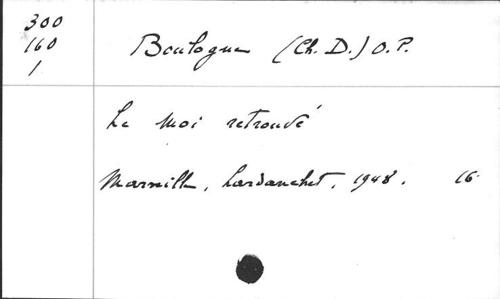 300
160
1
Boulogne (Ch. D.) O.P.
Le Moi retrouvé
Marseille, Lardanchet, 1948. 16